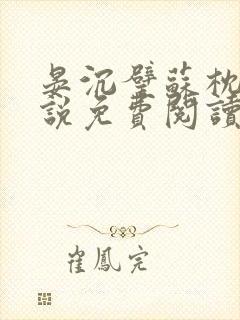 晏沉璧蘇枕
說免費閱讀
崔鳳完